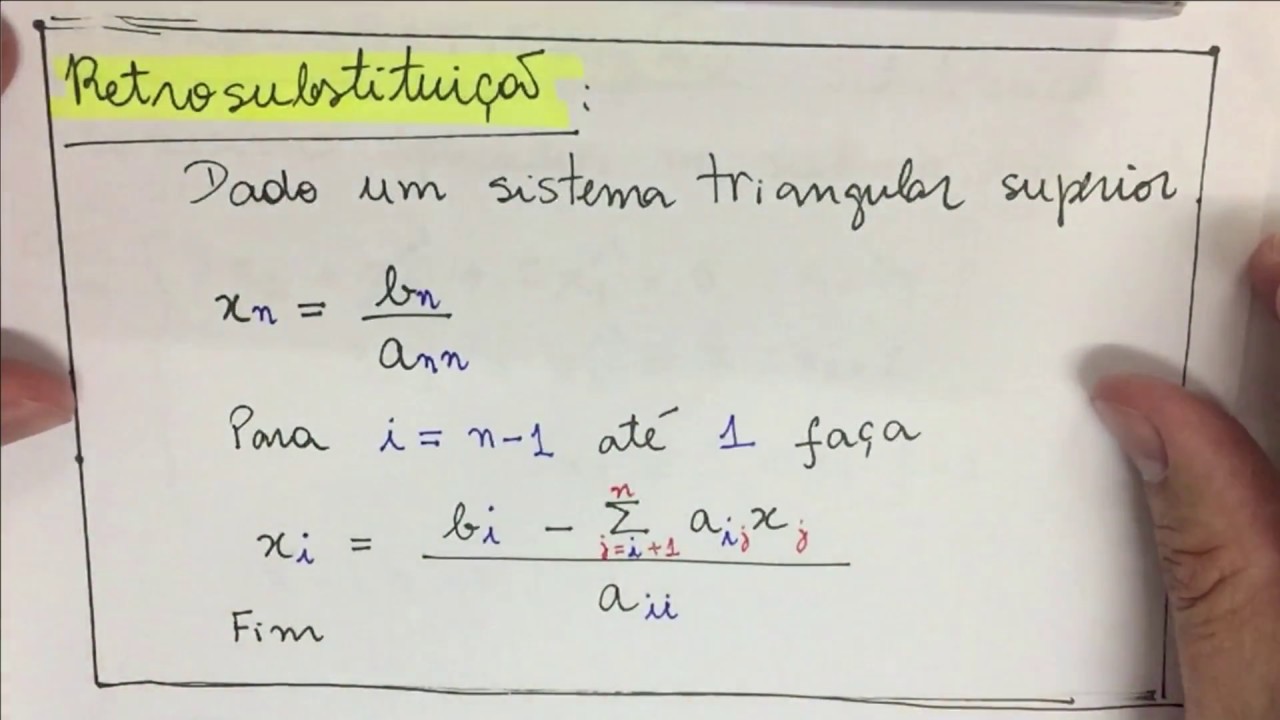 Retrosubstituição:
Dado um sistema triangular superior.
xₙ = bₙ / aₙₙ
Para i = n-1 até 1 faça
xᵢ = (bᵢ - Σⱼ₌ᵢ₊₁ⁿ aᵢⱼxⱼ) / aᵢᵢ
Fim